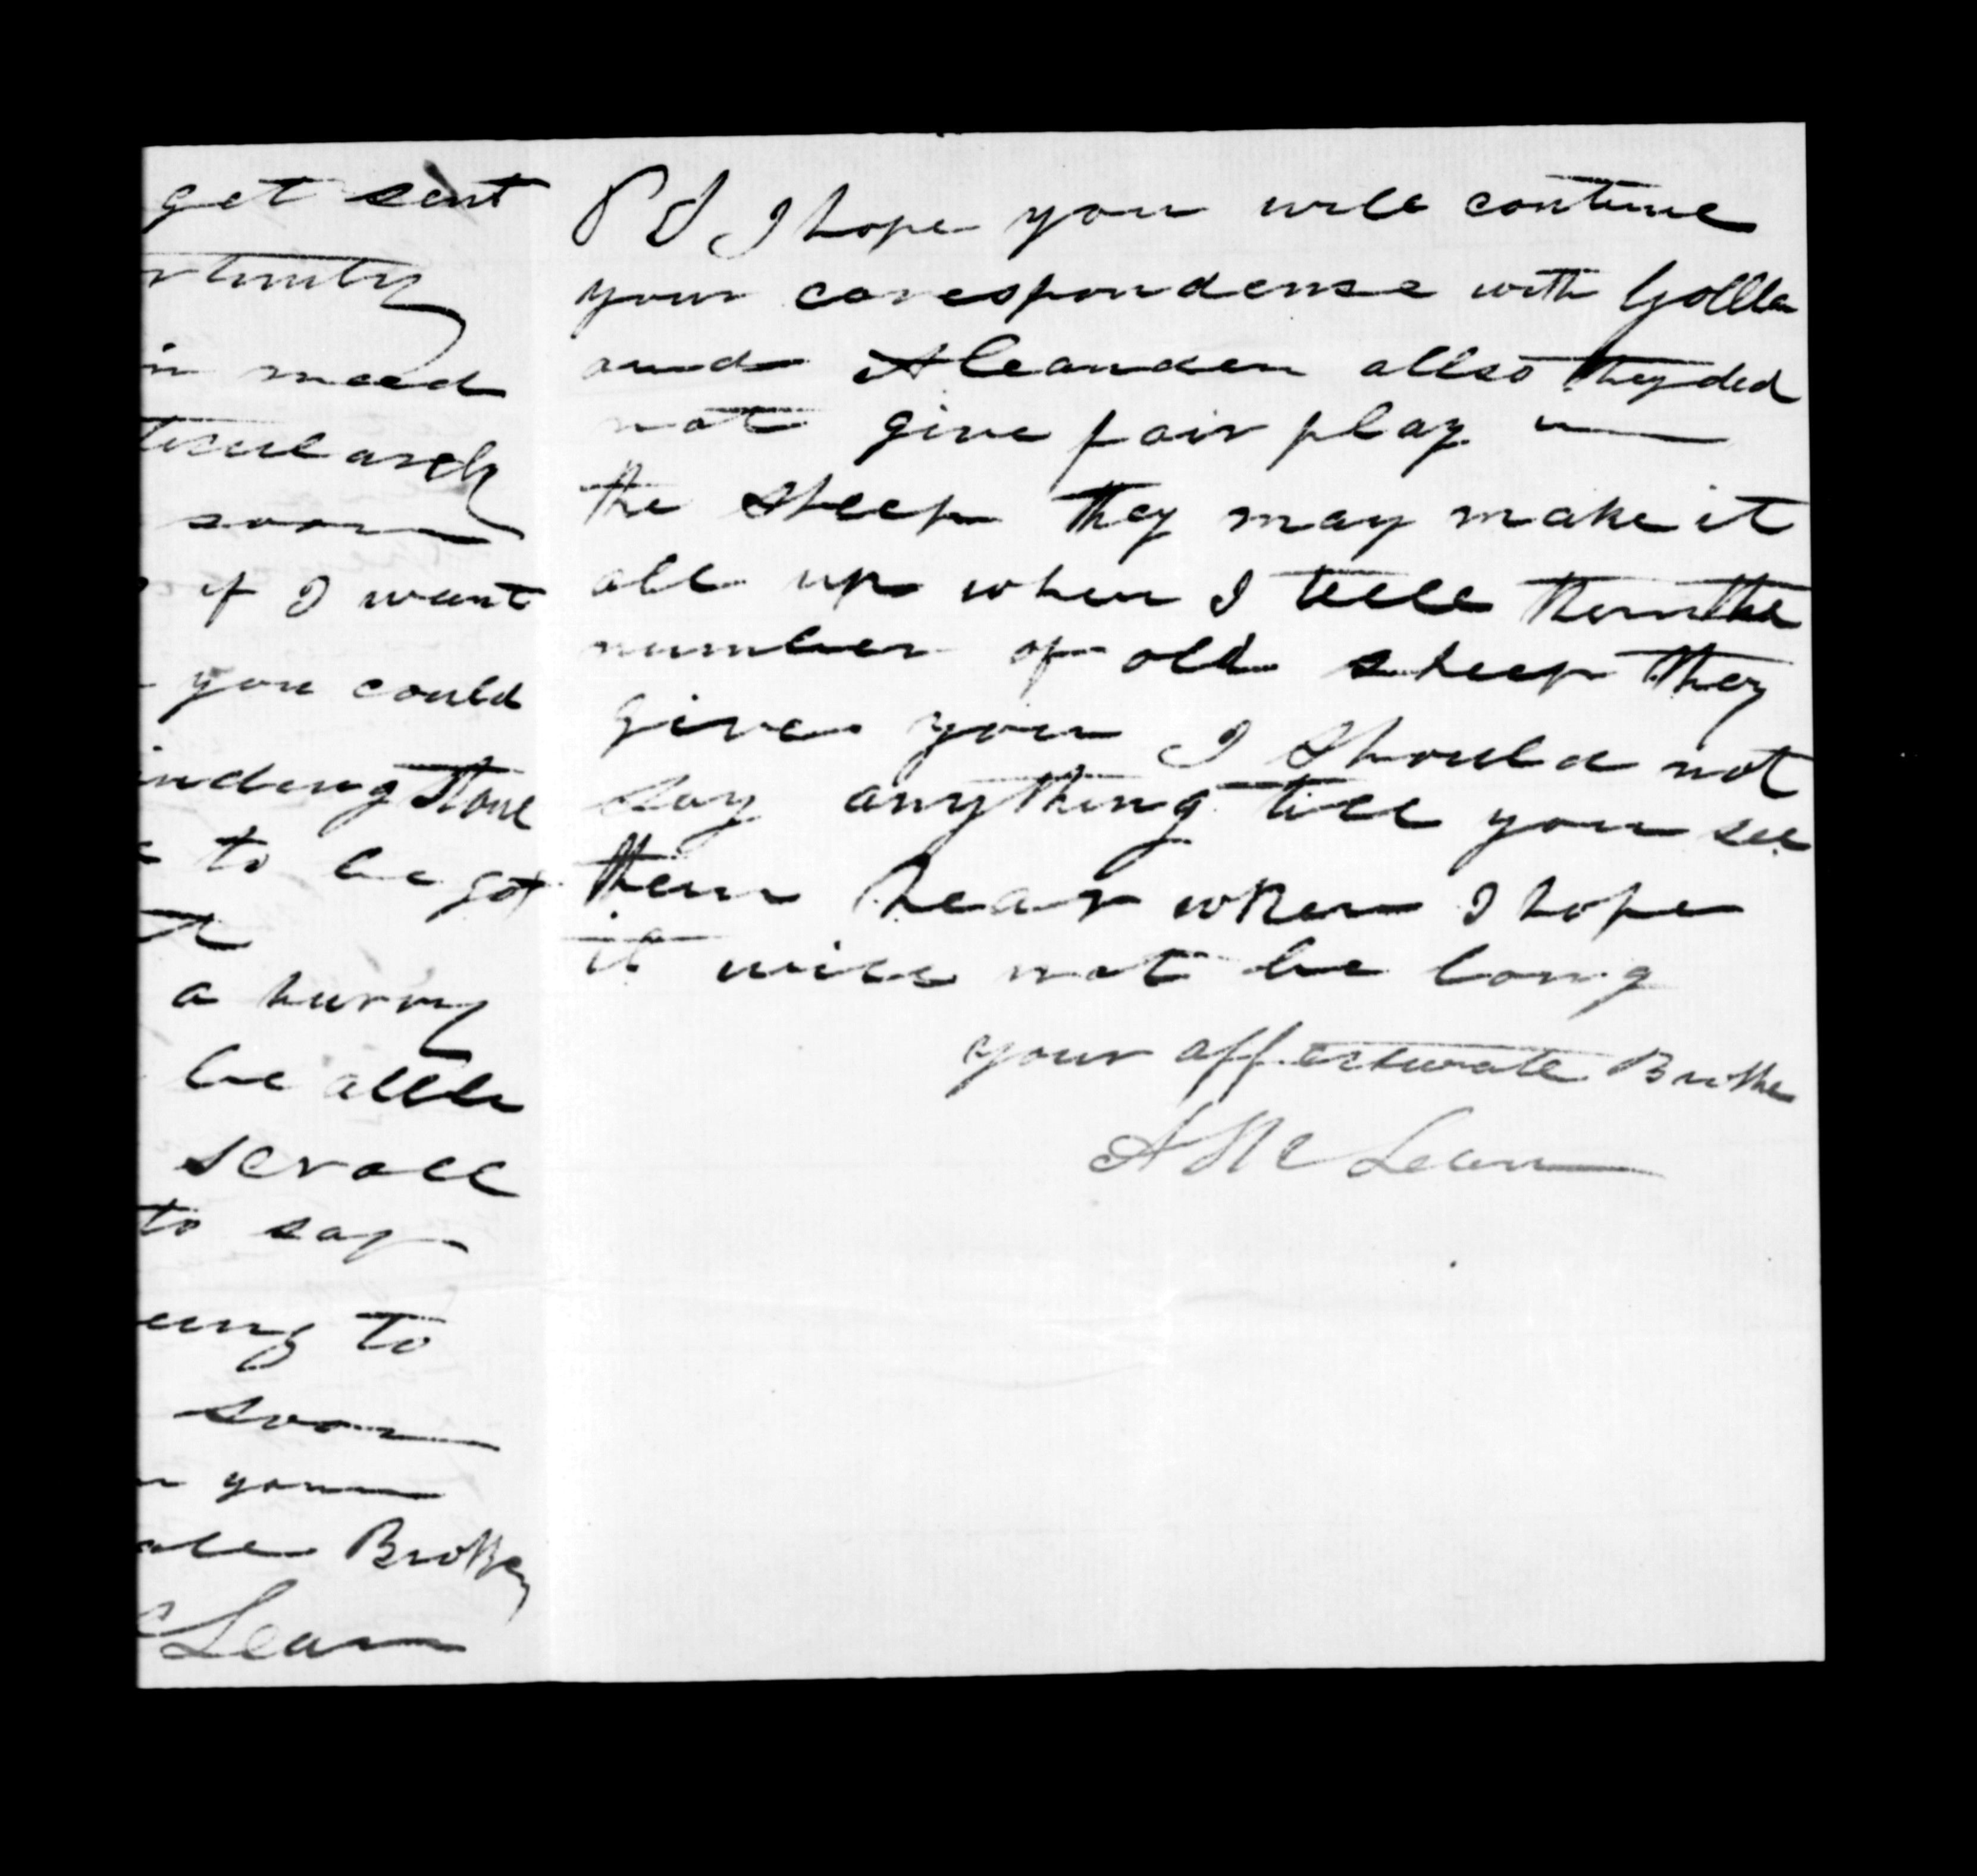 get sent
rtunity
in need
ticularely
soon
if I want
you could
inding stone
to be got
a hurry
be allble
scroll
to say
eing to
soon
you
ate Brother
cLean
P S I hope you will contune
your corespondense with Gollen
and Aleander allso they did
not give fair play in
the sheep they may make it
all up when I tell them the
number of old sheep they
give you I should not
say anything till you see
them hear when I hope
it will not be long
your affectunate Brothe
A McLean